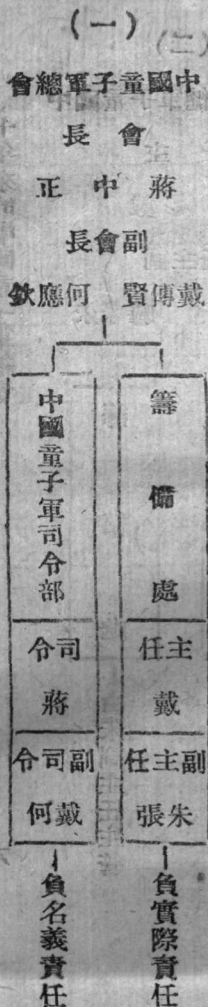 （一）
中國童子軍總會
會長
蔣中正
副會長
戴傳賢 何應欽
籌備處
主任
戴
副主任
朱張
負實際責任
中國童子軍司令部
司令
蔣
副司令
戴何
負名義責任